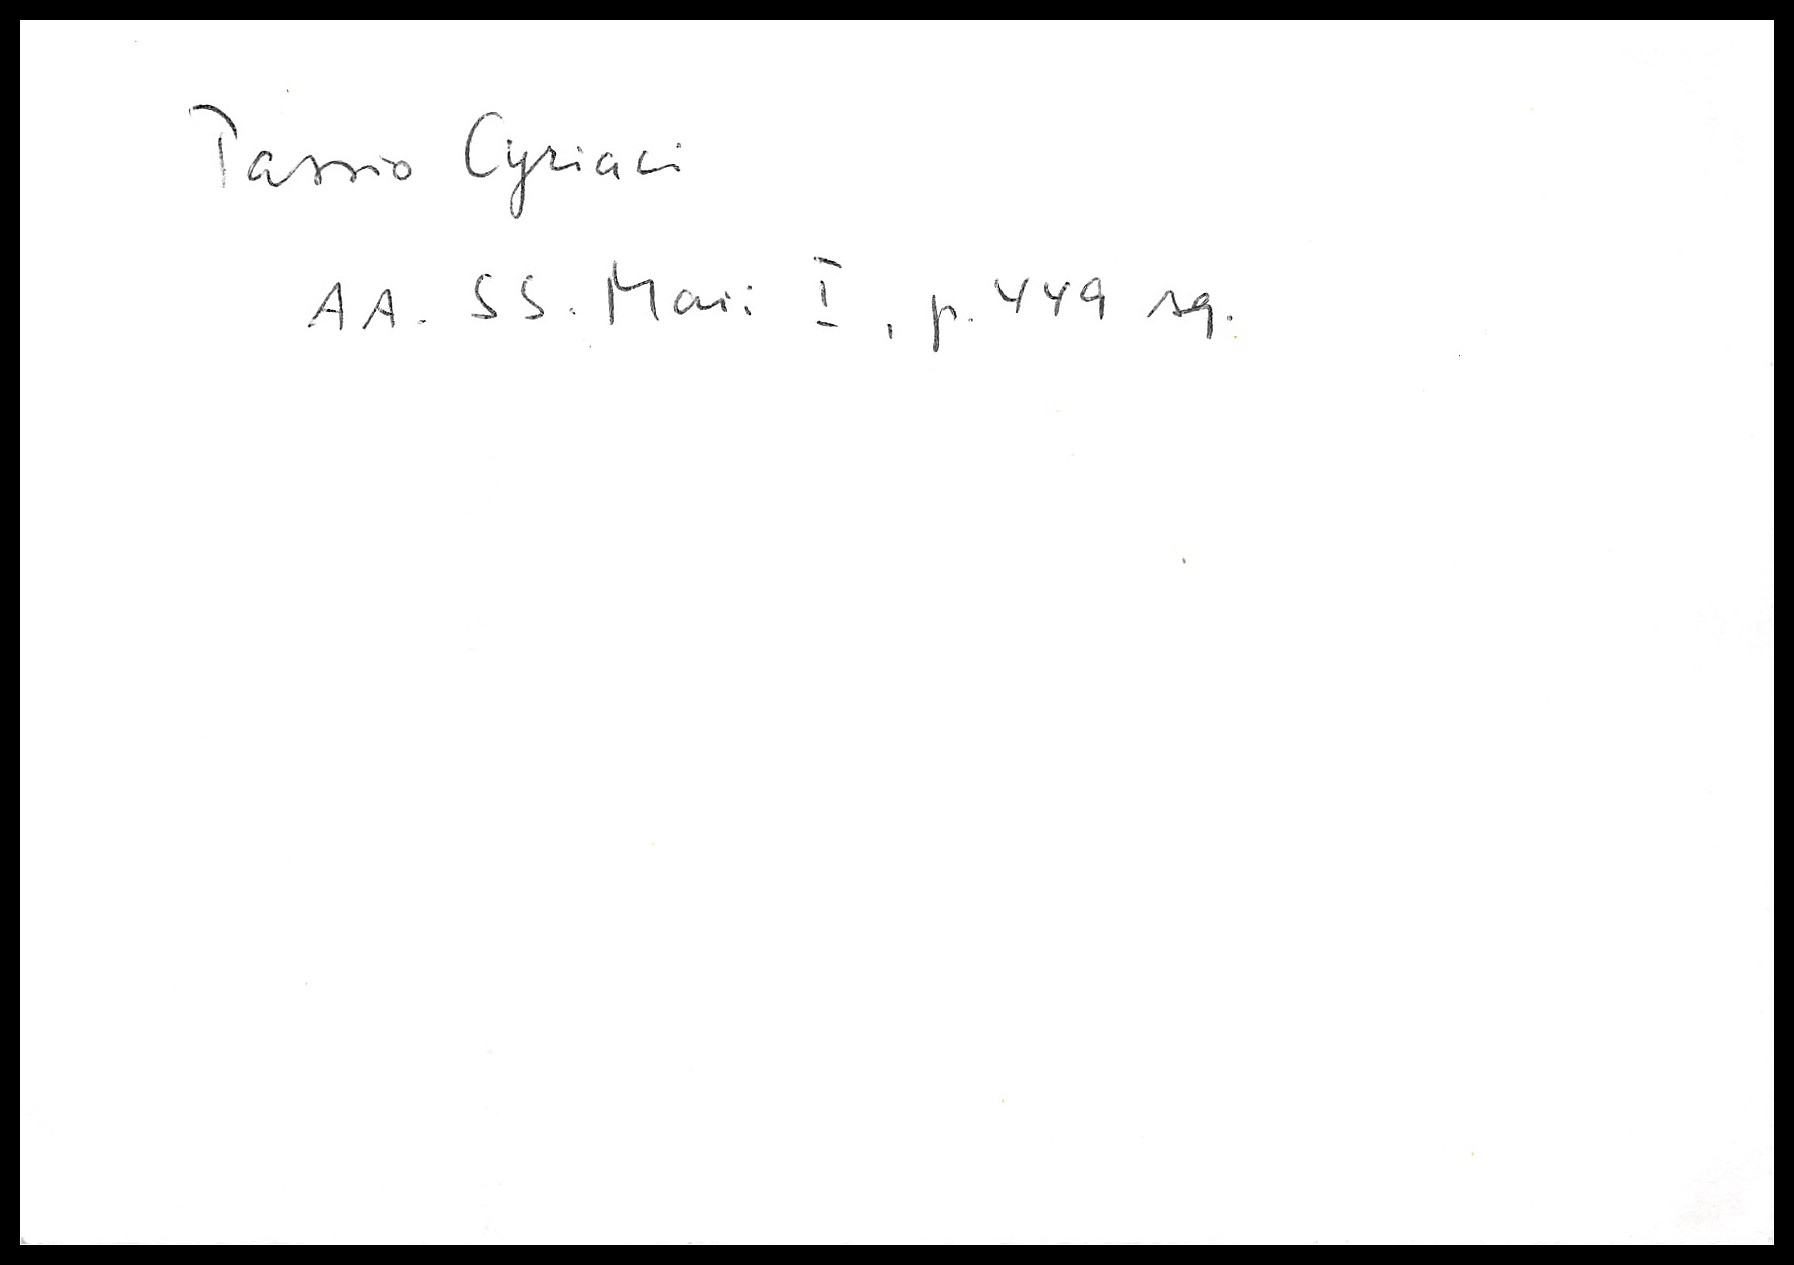 Passio Cyriaci
AA. SS. Maii I, p. 449 sq.